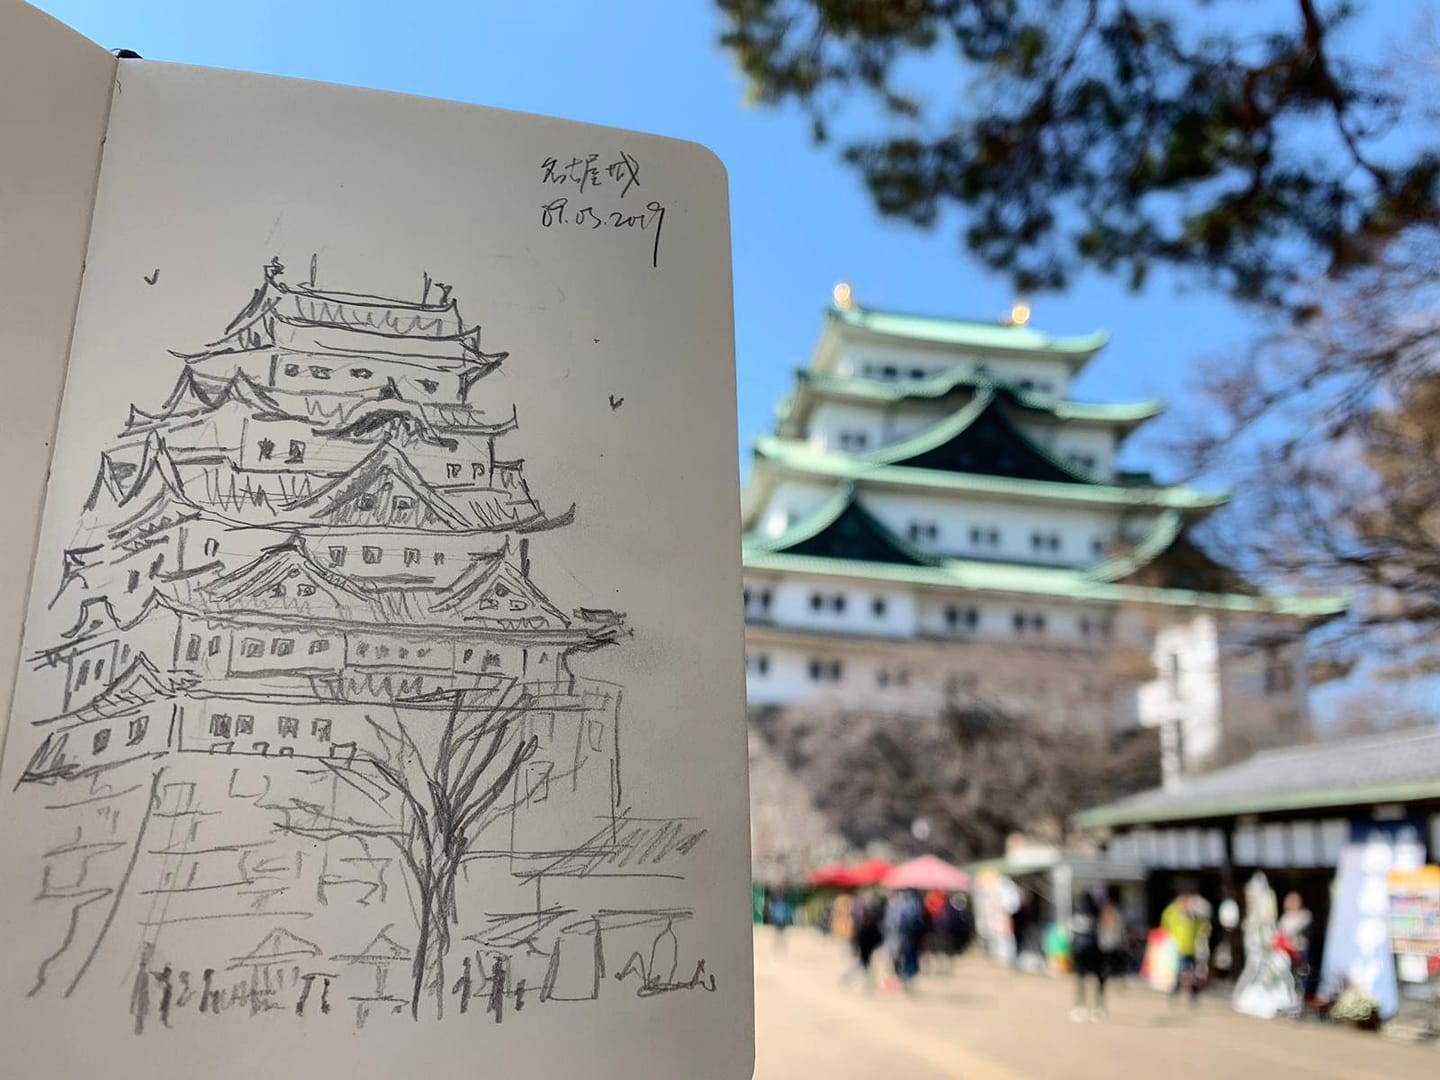 名古屋城
09.03.2019